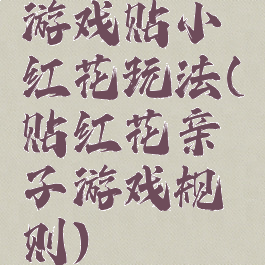 游戏贴小
红花玩法(
贴红花亲
子游戏规
则)